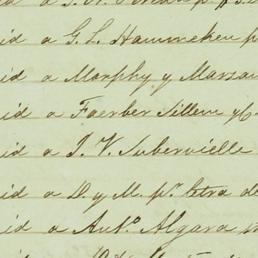 id a G. L. Hammeken p
id a Murphy y Marza
id a Faerber Sillem y C
id a J. V. Subervielle
id a D. y M. pr. letra de
id a Anto. Algara
id